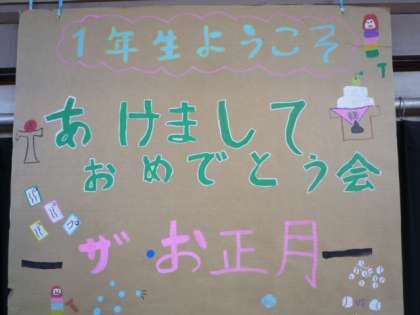 1年生ようこそ
あけまして
おめでとう会
ザ・お正月